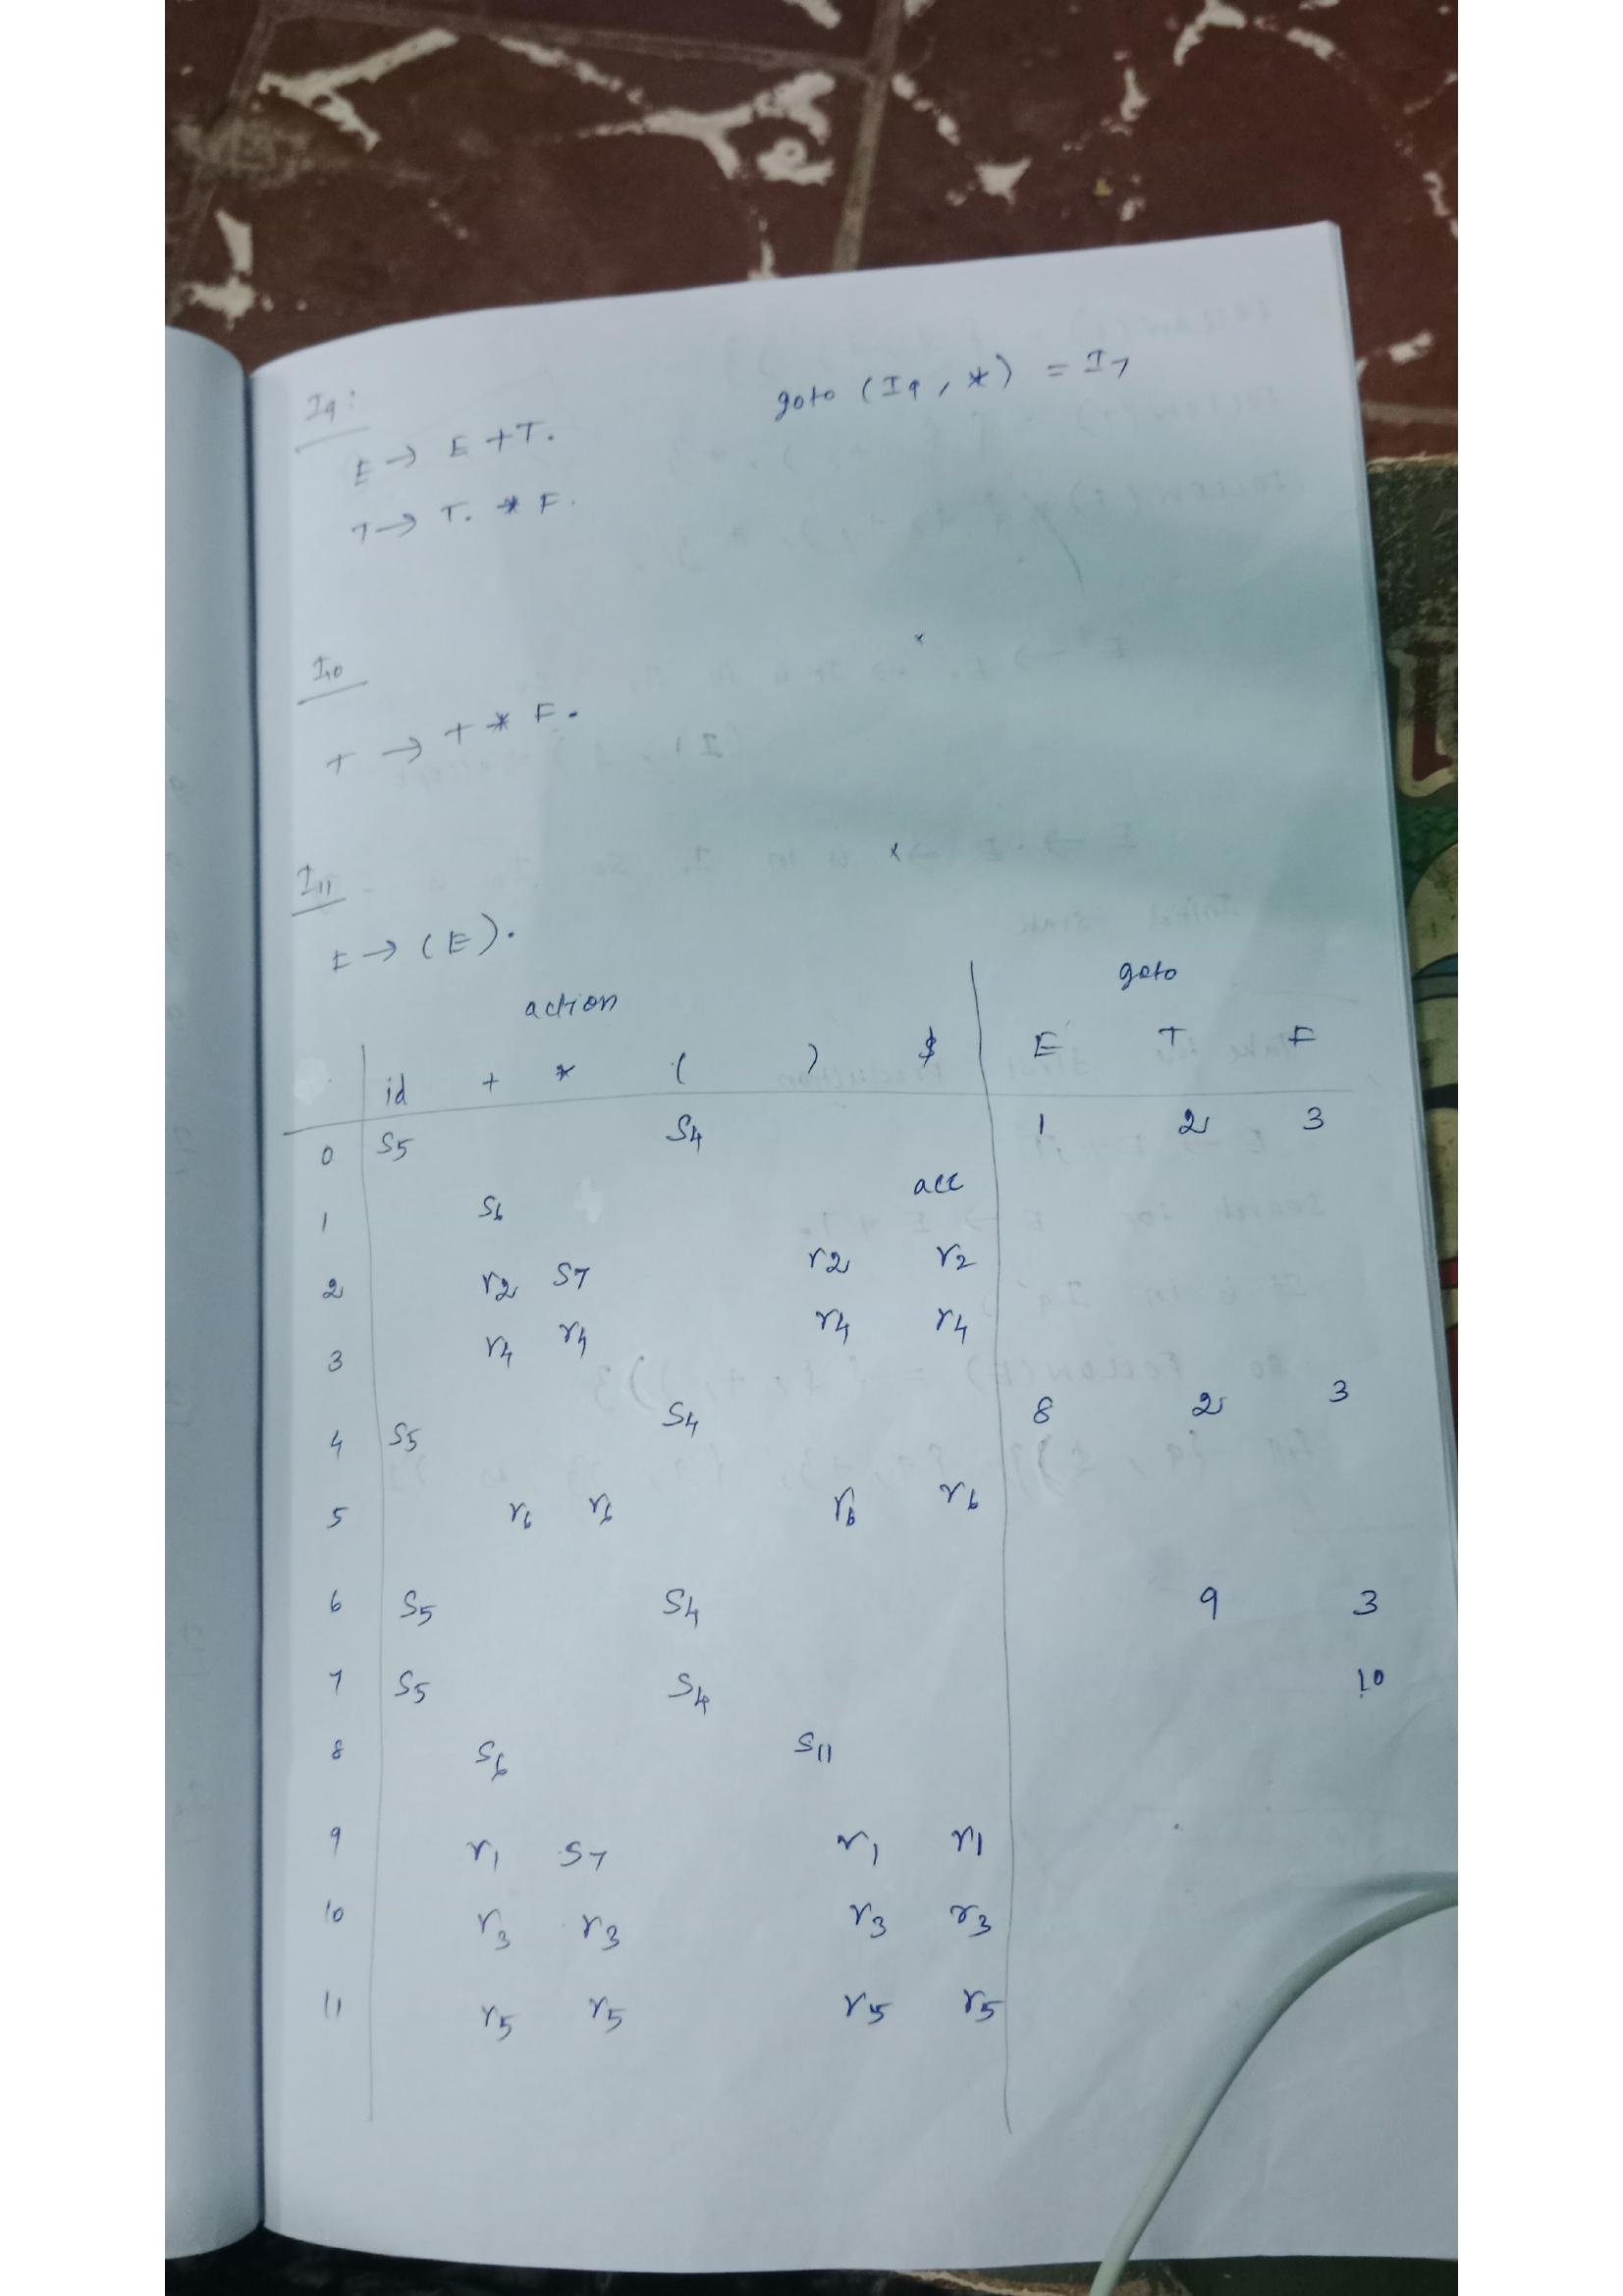 I9:
goto (I9, *) = I7
E → E +T.
T → T. * F.
I10
T → T * F.
I11
E → (E).
action goto
id + * ( ) $ E T F
0 S5 S4 1 2 3
1 S6 acc
2 r2 S7 r2 r2
3 r4 r4 r4 r4
4 S5 S4 8 2 3
5 r6 r6 r6 r6
6 S5 S4 9 3
7 S5 S4 10
8 S6 S11
9 r1 S7 r1 r1
10 r3 r3 r3 r3
11 r5 r5 r5 r5